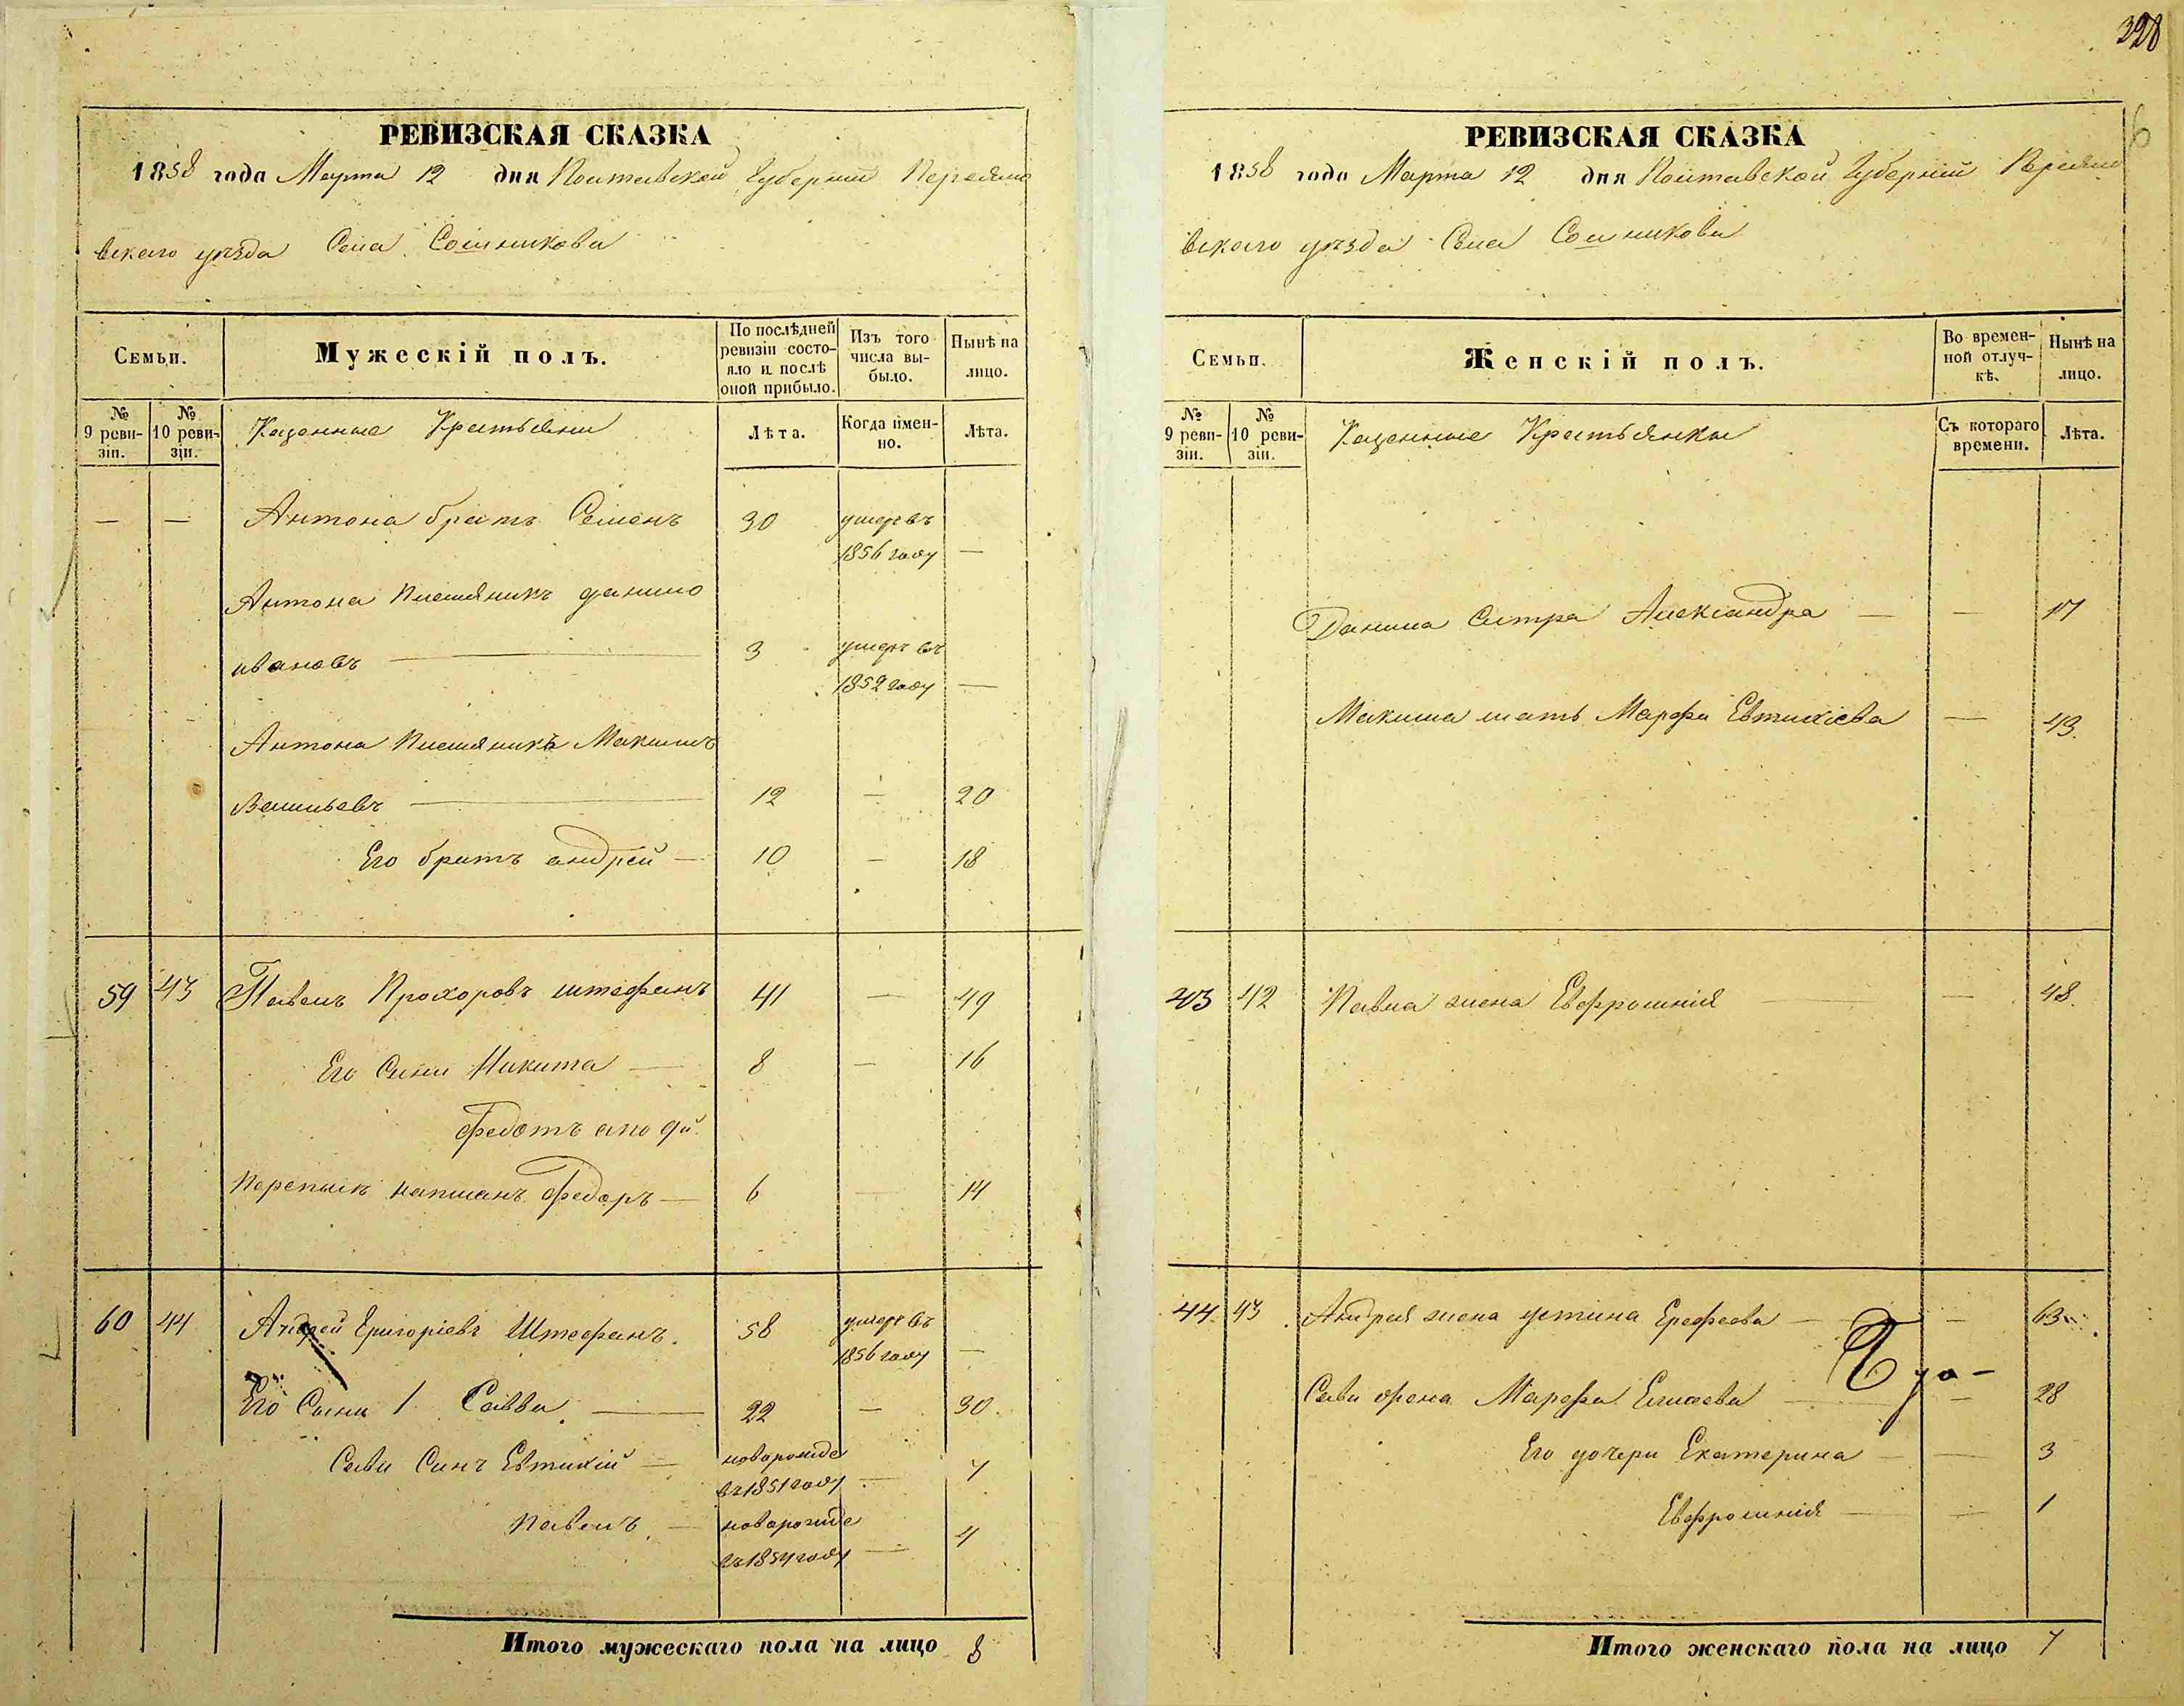 328
6
РЕВИЗСКАЯ СКАЗКА
1858 года Марта 12 дня Полтавской Губернии Переясло
вскаго уезда Села Сошникова
Семьи.
Мужескій полъ.
По послѣдней ревизіи состо-
яло и послѣ
оной прибыло.
Изъ того
числа вы-
было.
Нынѣ на
лицо.
№
9 реви-
зіи.
№
10 реви-
зіи.
Казенные Крестьяни
Лѣта.
Когда имен-
но.
Лѣта.
— — Антона братъ Семенъ 30 умеръ въ
1856 году —
Антона племяникъ данило
ивановъ — 3 умеръ въ
1852 году —
Антона племяникъ Максимъ
Васильевъ — 12 — 20
Его братъ андрей — 10 — 18
59 43 Павелъ Прохоровъ штефанъ 41 — 49
Его Сыны Никита — 8 — 16
Федотъ а по 9й
Переписи написанъ Федоръ — 6 — 14
60 44 Андрей Григоріевъ Штефанъ. 58 умеръ въ
1856 году —
Его Сыны 1 Савва — 22 — 30
Савы Сынъ Евтихій — новорожде
въ 1851 году — 7
Павелъ — новорожде
въ 1854 году — 4
Итого мужескаго пола на лицо 8
РЕВИЗСКАЯ СКАЗКА
1858 года Марта 12 дня Полтавской Губерній Переясло
вскаго уезда Села Сошникова
Семьи.
Женскій полъ.
Во времен-
ной отлуч-
кѣ.
Нынѣ на
лицо.
№
9 реви-
зіи.
№
10 реви-
зіи.
Казенные Крестьянки
Съ котораго
времени.
Лѣта.
Данила Систра Александра — — 17
Максима мать Марфа Евтихіева — 43
43 42 Павла жена Евфросинія — 48
44 43 Андрея жена устина Ерофеева — — 63
Савы жена Марефа Елисеева — 28
Его дочери Екатерина — — 3
Евфросинія — — 1
Итого женскаго пола на лицо 7